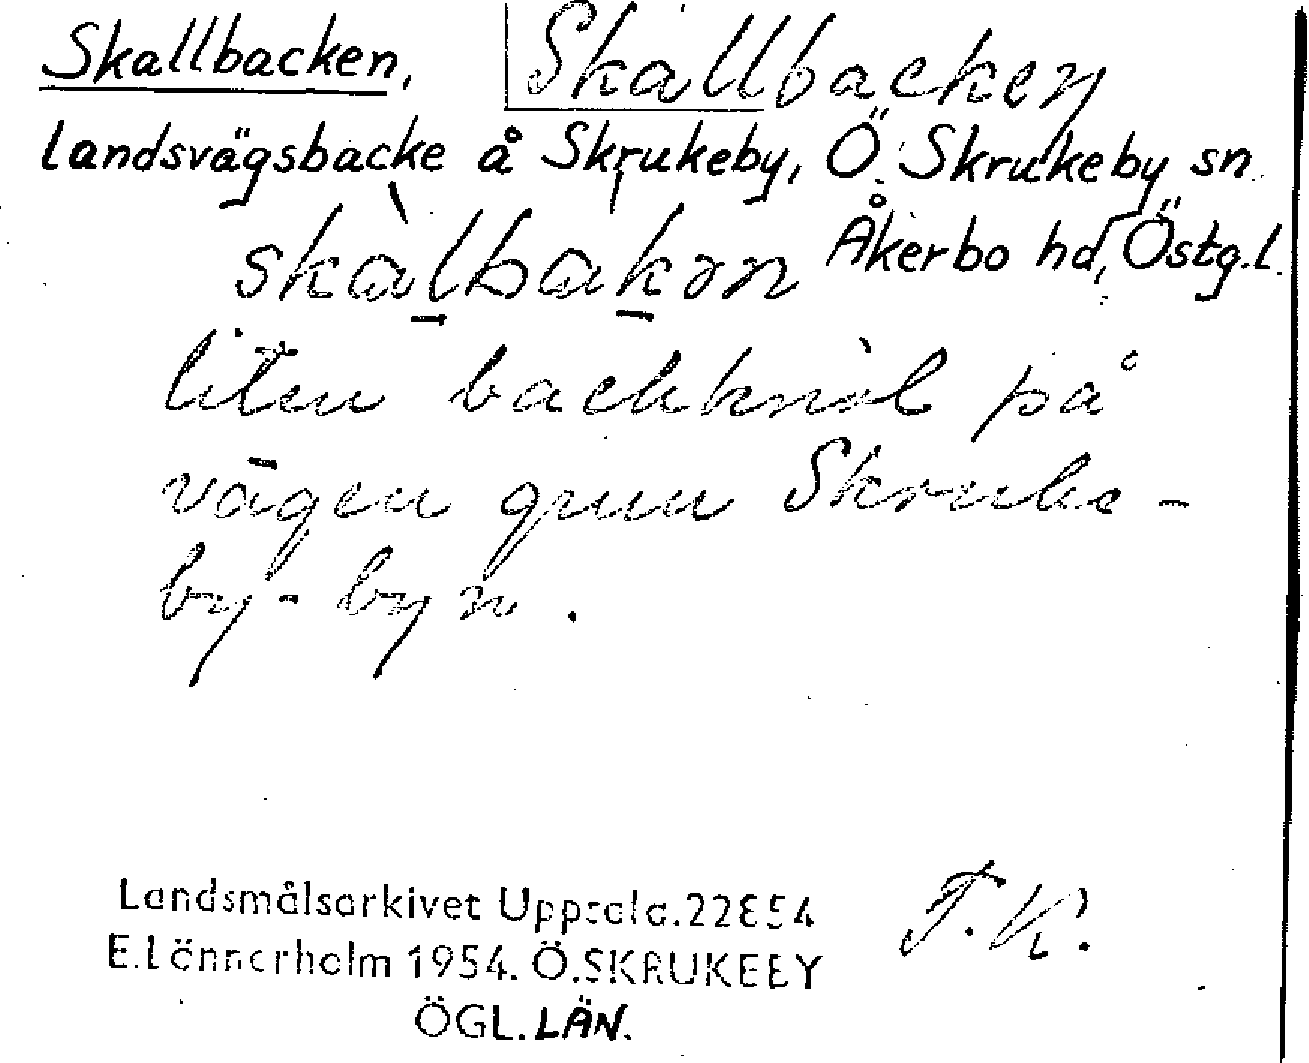 Skallbacken, Skallbacken
landsvägsbacke å Skrukeby, Ö. Skrukeby sn
Åkerbo hd, Östg.l.
skàlbakən
liten backknöl på
vägen genom Skruke-
by-byn.
Landsmålsarkivet Uppsala. 22854
E. Lönnerholm 1954. Ö. SKRUKEBY
ÖGL. LÄN.
F. K.